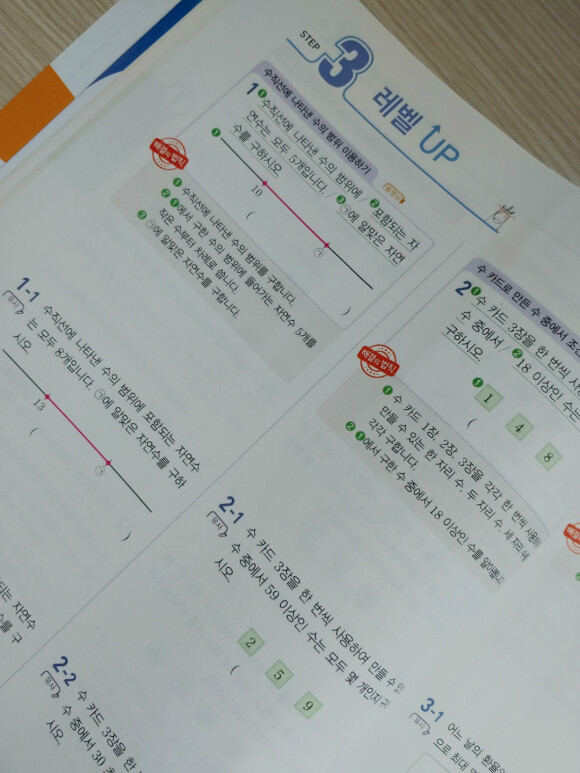 STEP 3 레벨 UP
수직선에 나타낸 수의 범위 이용하기
1 ❶수직선에 나타낸 수의 범위에 / ❷포함되는 자
연수는 모두 5개입니다. / ❸㉠에 알맞은 자연
수를 구하시오.
❶
10
㉠
( )
해결의 법칙
❶ 수직선에 나타낸 수의 범위를 구합니다.
❷ ❶에서 구한 수의 범위에 들어가는 자연수 5개를
작은 수부터 차례로 씁니다.
❸ ㉠에 알맞은 자연수를 구합니다.
1-1
유사
수직선에 나타낸 수의 범위에 포함되는 자연수
는 모두 8개입니다. ㉠에 알맞은 자연수를 구하
시오.
13
㉠
( )
되는 자연수
수를 구
수 카드로 만든 수 중에서 조
2 ❶수 카드 3장을 한 번씩 사
수 중에서 / ❷18 이상인 수는
구하시오.
❶
1 4 8
(
해결의 법칙
❶ 수 카드 1장, 2장, 3장을 각각 한 번씩 사용하
만들 수 있는 한 자리 수, 두 자리 수, 세 자리 수
각각 구합니다.
❷ ❶에서 구한 수 중에서 18 이상인 수를 알아봅니
2-1
유사
수 카드 3장을 한 번씩 사용하여 만들 수
수 중에서 59 이상인 수는 모두 몇 개인지
시오.
2 5 9
(
2-2
유사
수 카드 3장을 한
수 중에서 30
시오.
3-1
유사
어느 날의 환율
으로 최대